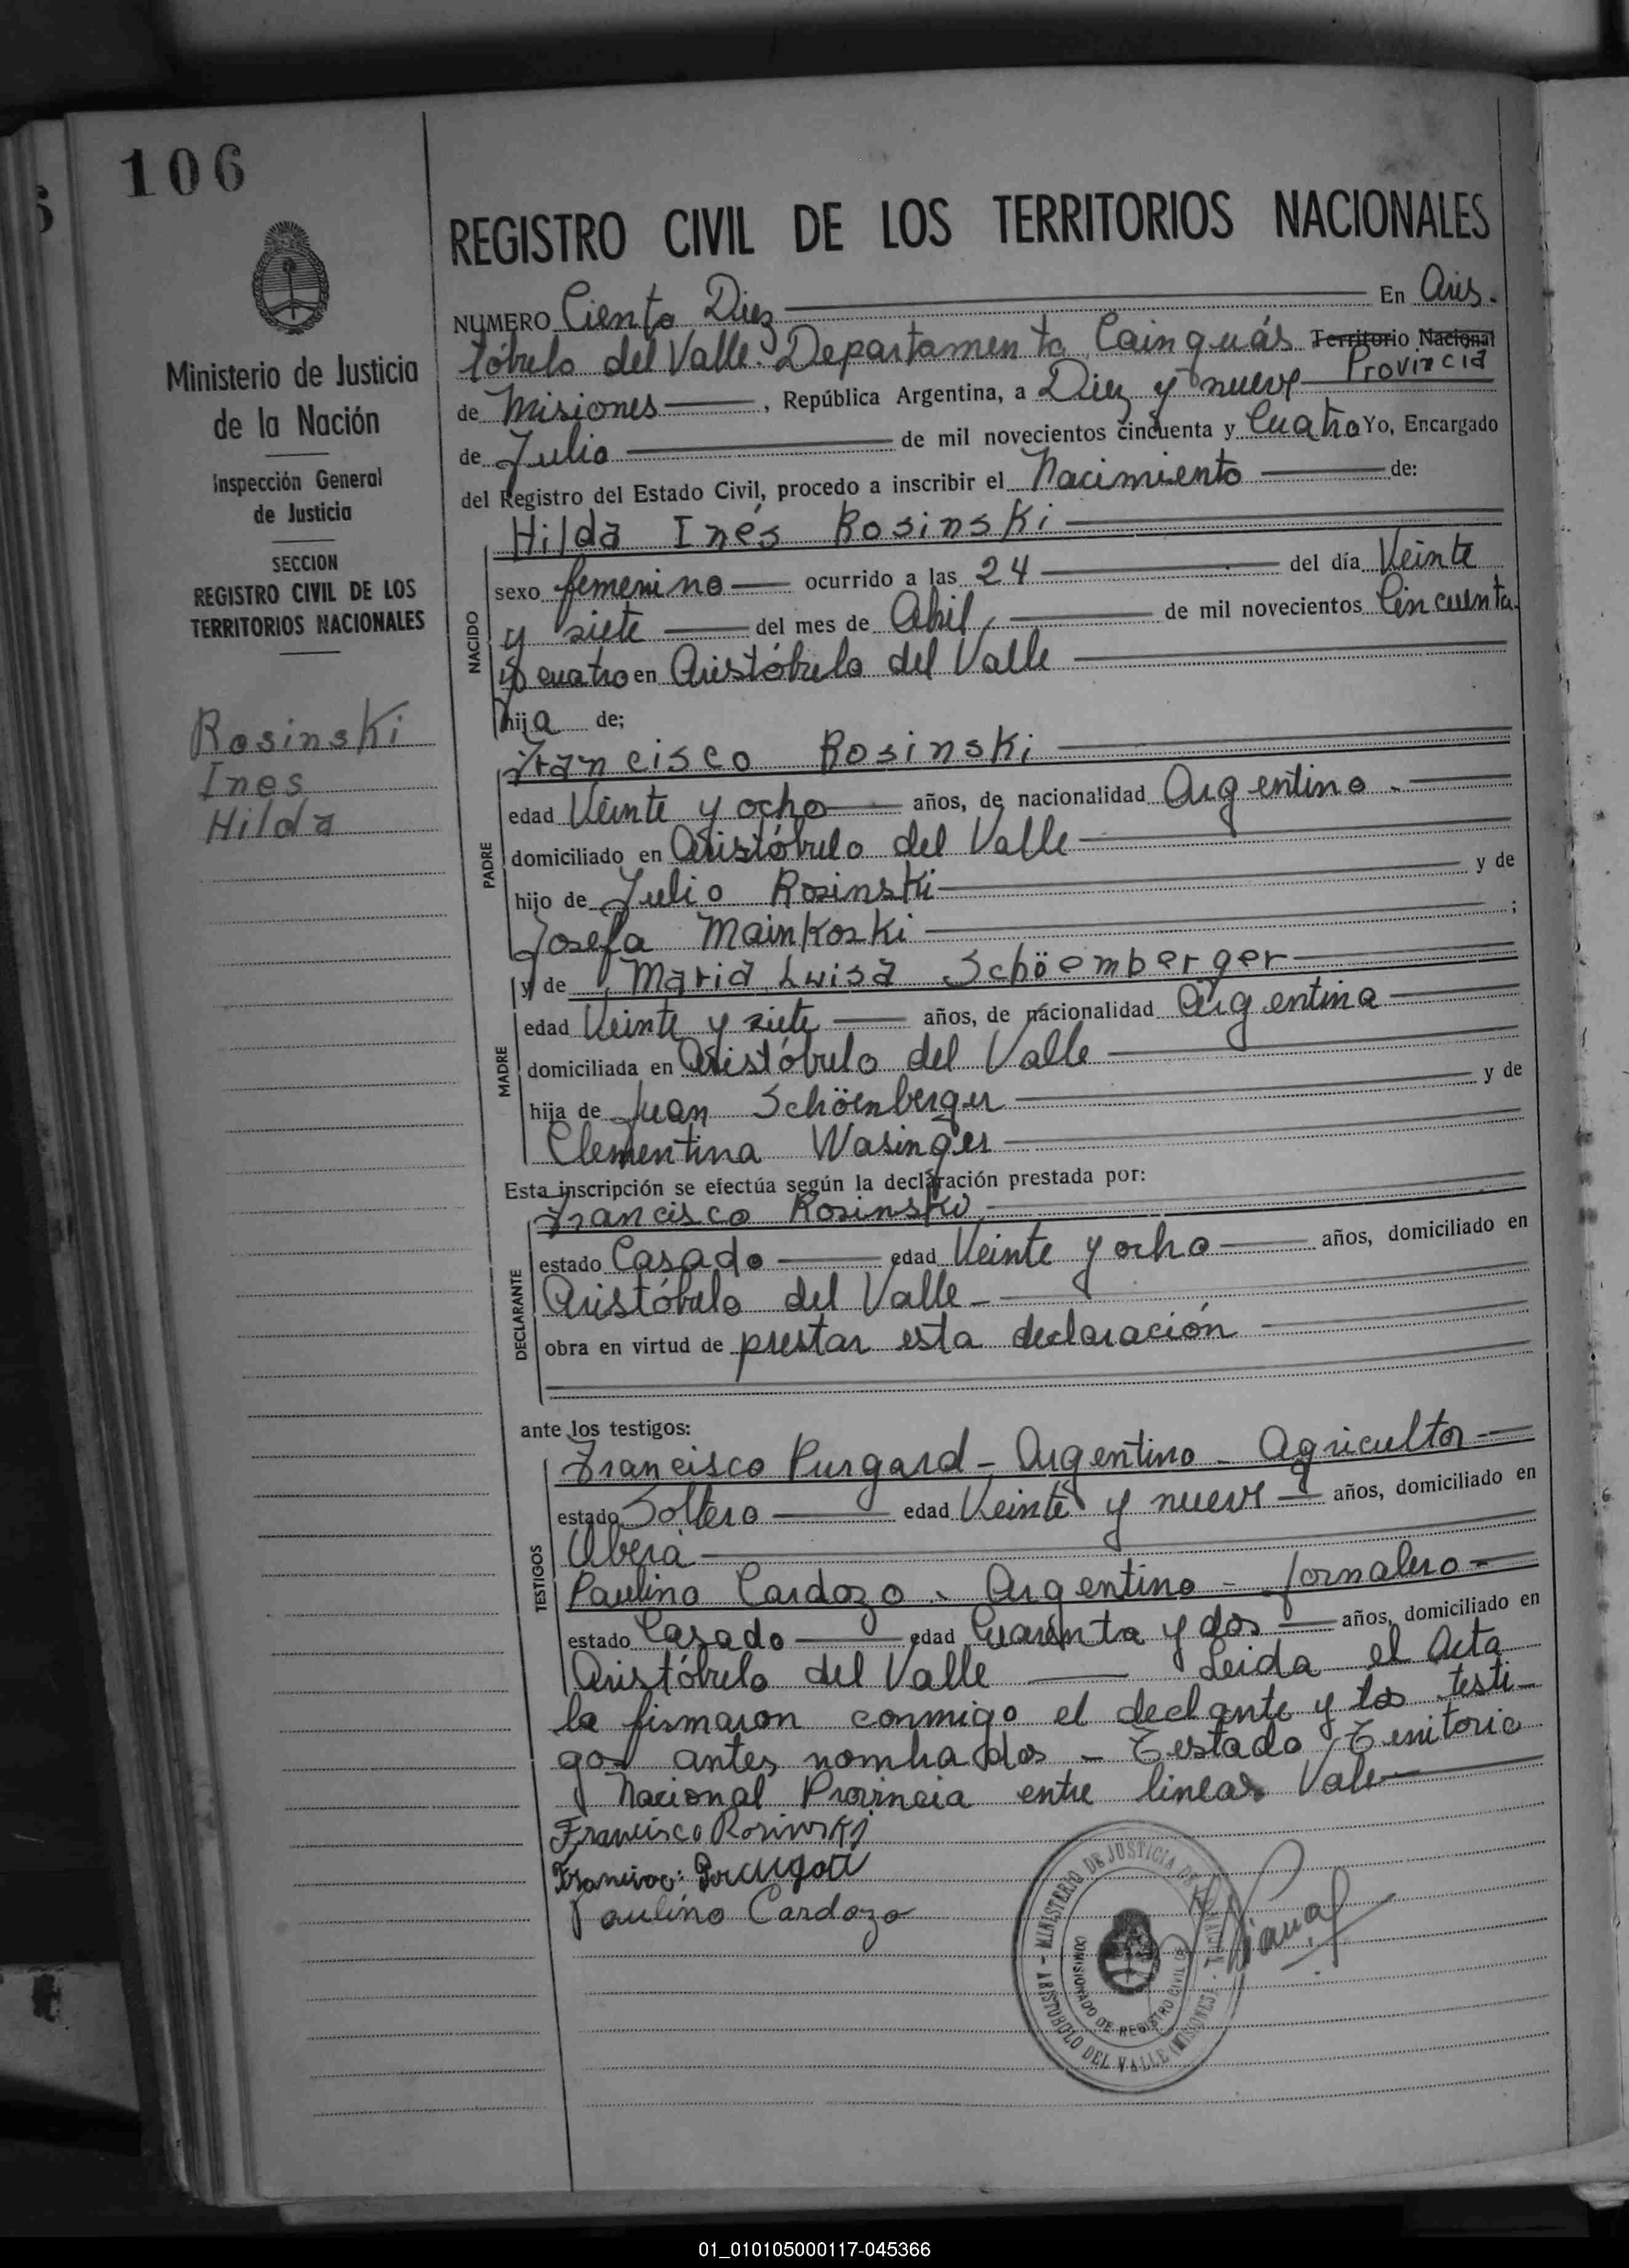 106
Ministerio de Justicia
de la Nación
Inspección General
de Justicia
SECCION
REGISTRO CIVIL DE LOS
TERRITORIOS NACIONALES
Rosinski
Ines
Hilda
REGISTRO CIVIL DE LOS TERRITORIOS NACIONALES
NUMERO Ciento Diez En Aris-
tóbulo del Valle. Departamento Cainguás Territorio Nacional
Provincia
de Misiones, República Argentina, a Diez y nueve
de Julio de mil novecientos cincuenta y Cuatro Yo, Encargado
del Registro del Estado Civil, procedo a inscribir el Nacimiento de:
NACIDO
Hilda Inés Rosinski
sexo femenino ocurrido a las 24 del día Veinte
y siete del mes de Abril de mil novecientos Cincuenta
y cuatro en Aristóbulo del Valle
hija de;
PADRE
Francisco Rosinski
edad Veinte y ocho años, de nacionalidad Argentino.
domiciliado en Aristóbulo del Valle
hijo de Julio Rosinski y de
Josefa Mainkoski ;
MADRE
y de Maria Luisa Schöemberger
edad Veinte y siete años, de nacionalidad Argentina
domiciliada en Aristóbulo del Valle
hija de Juan Schöenberger y de
Clementina Wasinger
Esta inscripción se efectúa según la declaración prestada por:
DECLARANTE
Francisco Rosinski
estado Casado edad Veinte y ocho años, domiciliado en
Aristóbulo del Valle
obra en virtud de prestar esta declaración
ante los testigos:
TESTIGOS
Francisco Purgard - Argentino - Agricultor -
estado Soltero edad Veinte y nueve años, domiciliado en
Oberá
Paulino Cardozo - Argentino - Jornalero -
estado Casado edad Cuarenta y dos años, domiciliado en
Aristóbulo del Valle Leida el Acta
la firmaron conmigo el declante y los testi-
gos antes nombrados - Testado Territorio
Nacional Provincia entre lineas Vale
Francisco Rosinski
Paulino Cardozo
MINISTERIO DE JUSTICIA DE LA NACION
COMISIONADO DE REGISTRO CIVIL DE
ARISTOBULO DEL VALLE (MISIONES)
01_010105000117-045366